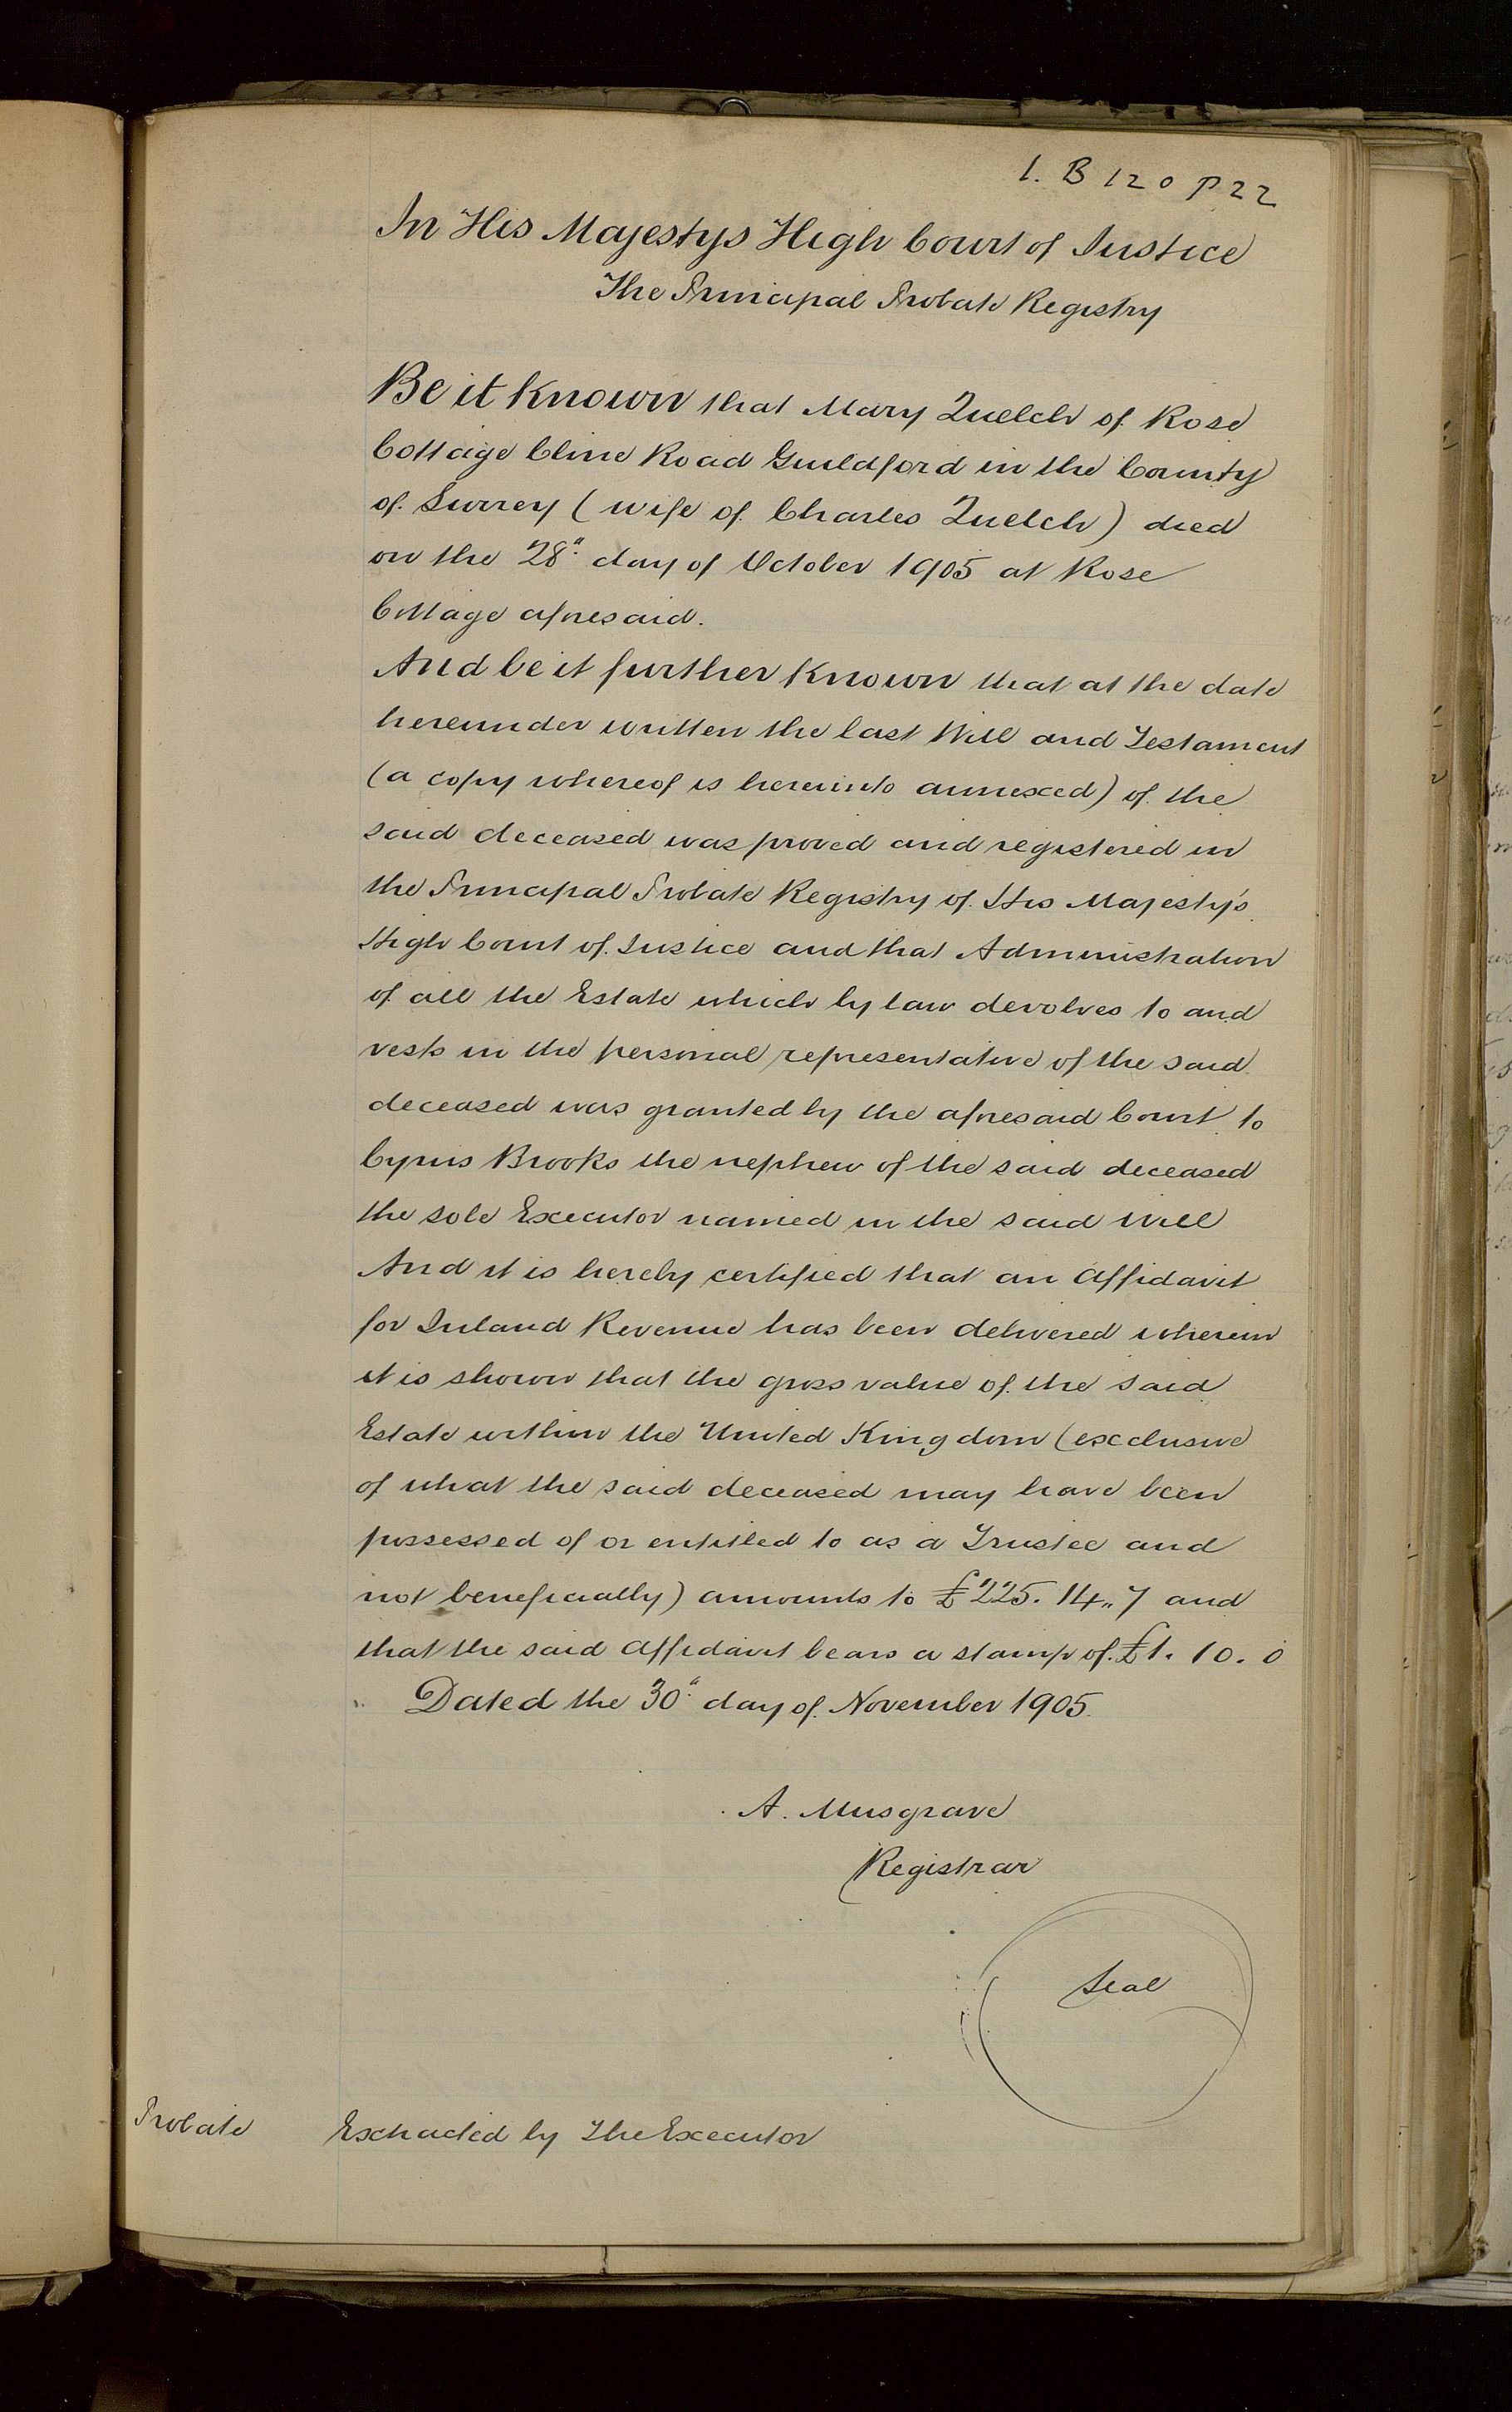 1. B 120 P 22
In His Majestys High Court of Justice
The Principal Probate Registry
Be it known that Mary Quelch of Rose
Cottage Cline Road Guildford in the County
of Surrey (wife of Charles Quelch) died
on the 28" day of October 1905 at Rose
Cottage aforesaid.
And be it further known that at the date
hereunder written the last Will and Testament
(a copy whereof is hereunto annexed) of the
said deceased was proved and registered in
the Principal Probate Registry of His Majesty's
High Court of Justice and that Administration
of all the Estate which by law devolves to and
vests in the personal representative of the said
deceased was granted by the aforesaid Court to
Cyrus Brooks the nephew of the said deceased
the sole Executor named in the said will
And it is hereby certified that an Affidavit
for Inland Revenue has been delivered wherein
it is shown that the gross value of the said
Estate within the United Kingdom (exclusive
of what the said deceased may have been
possessed of or entitled to as a Trustee and
not beneficially) amounts to £225. 14,, 7 and
that the said Affidavit bears a stamp of £1. 10. 0
Dated the 30" day of November 1905.
A. Musgrave
Registrar
Seal
Probate Extracted by The Executor